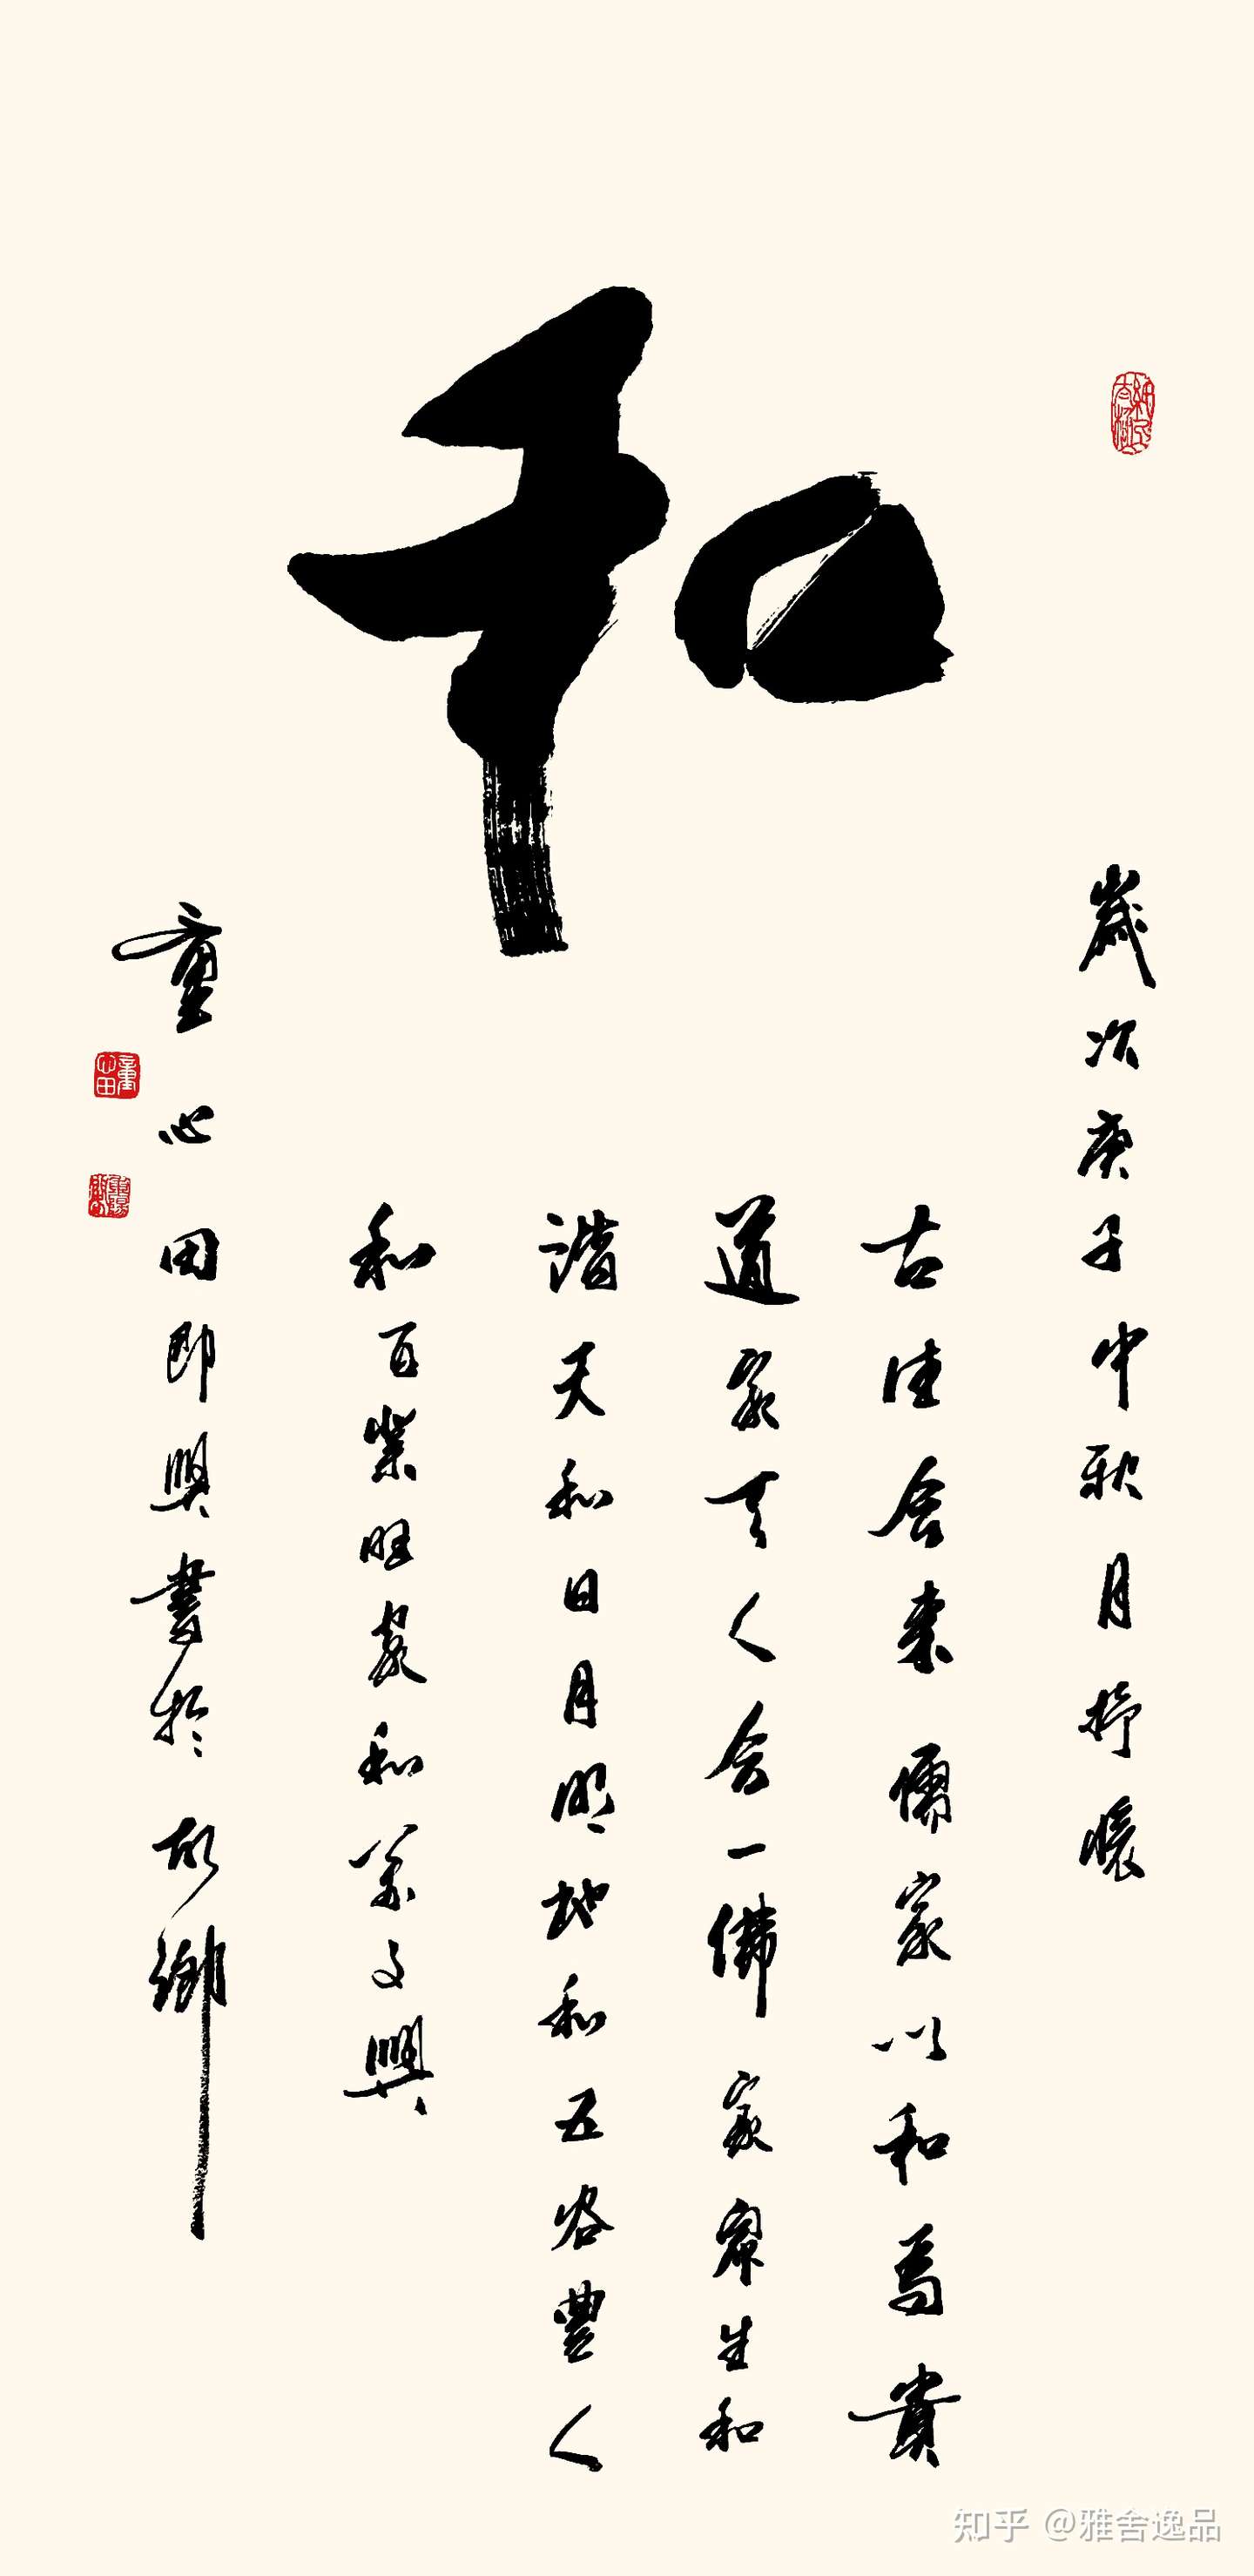 和
歲次庚子中秋月抒懷
古往今来儒家以和為貴
道家天人合一佛家眾生和
諧天和日月明地和五谷豐人
和百業旺家和萬事興
童心田即興書於故鄉
童心田
知乎 @雅舍逸品